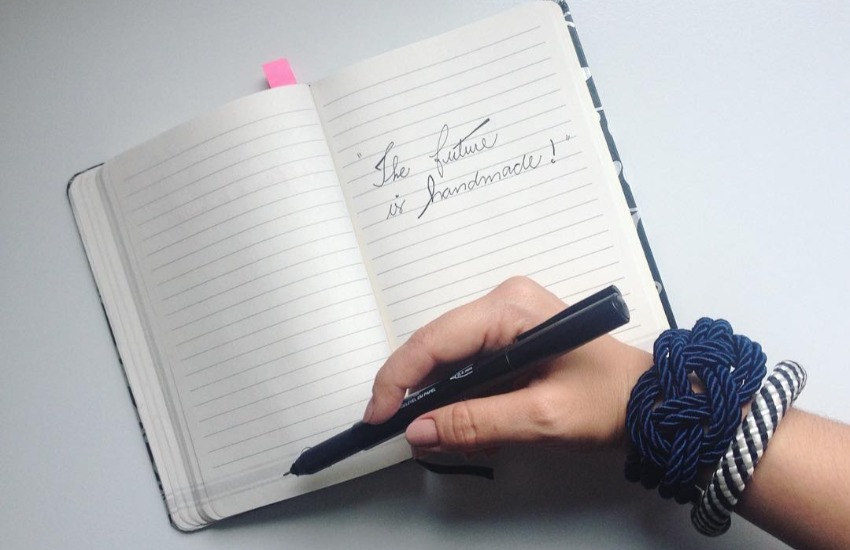 "The future
is handmade!"